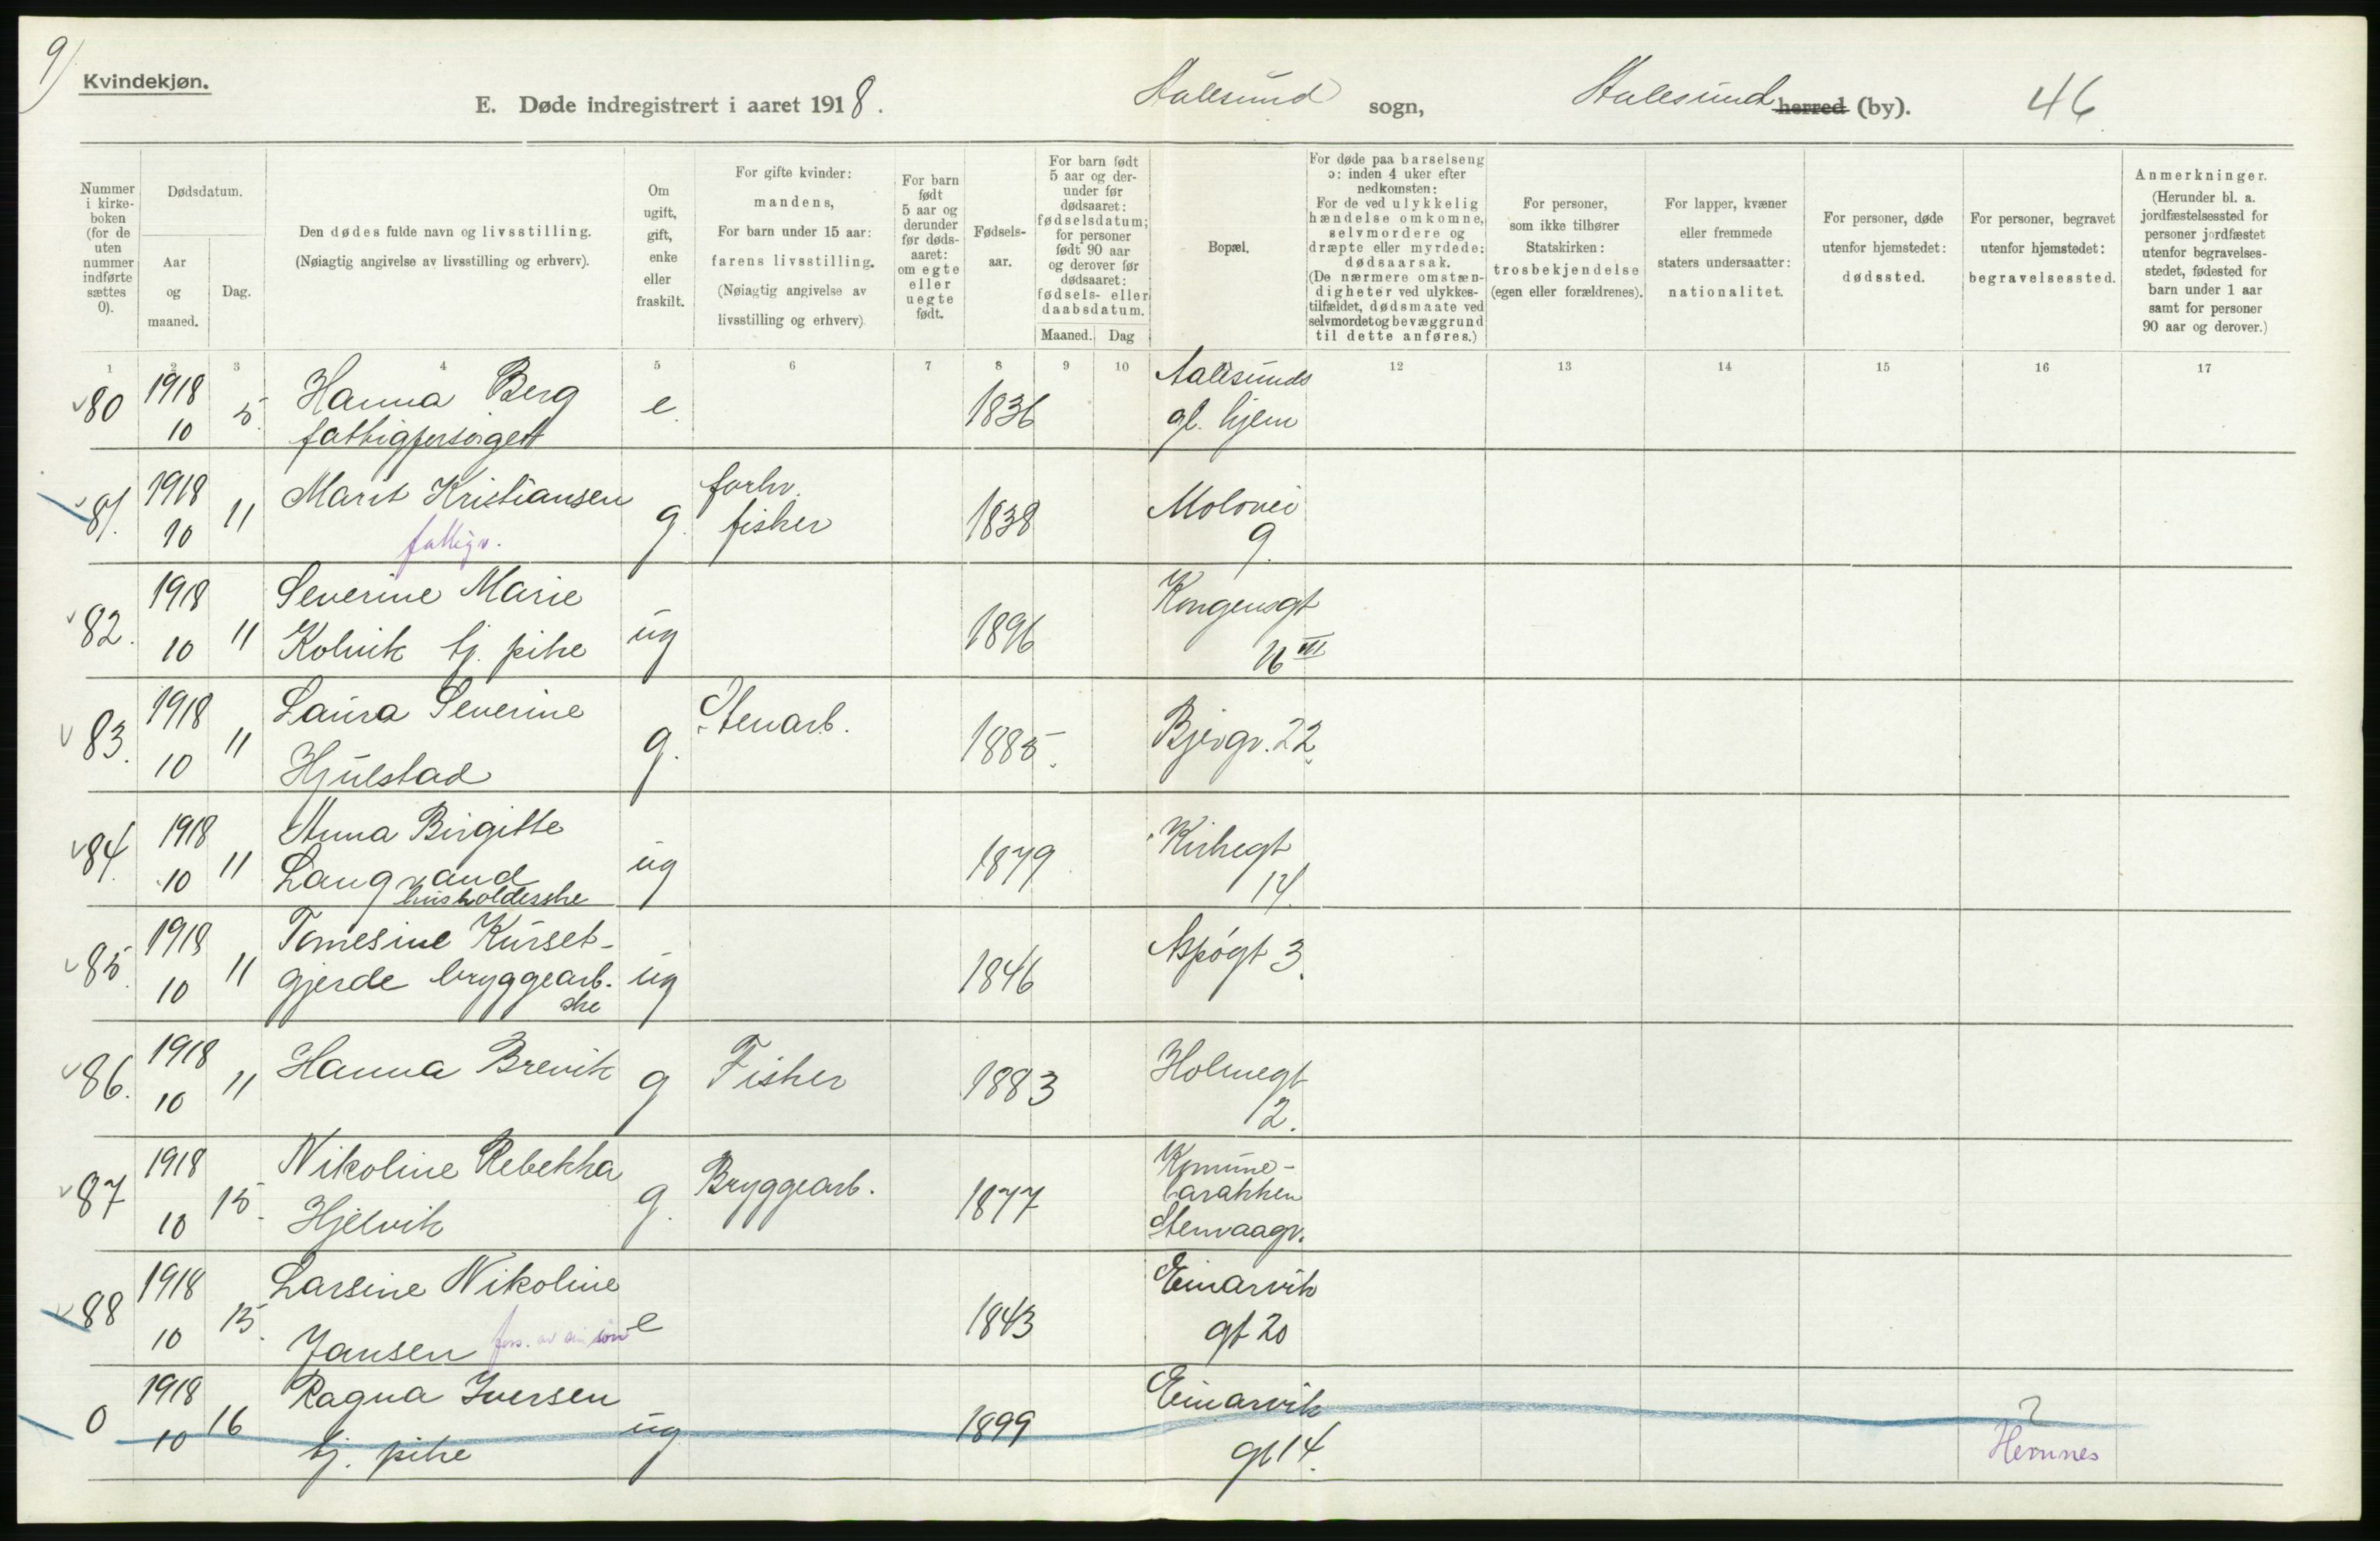 9)
Kvindekjøn.
E. Døde indregistrert i aaret 1918.
Aalesund sogn,
Aalesund herred (by).
46
Nummer i kirke-boken (for de uten nummer indførte sættes 0).
Dødsdatum.
Aar og maaned.
Dag.
Den dødes fulde navn og livsstilling.
(Nøiagtig angivelse av livsstilling og erhverv).
Om ugift, gift, enke eller fraskilt.
For gifte kvinder: mandens,
For barn under 15 aar: farens livsstilling.
(Nøiagtig angivelse av livsstilling og erhverv)
For barn født 5 aar og derunder før døds-aaret: om egte eller uegte født.
Fødsels-aar.
For barn født 5 aar og der-under før dødsaaret: fødselsdatum; for personer født 90 aar og derover før dødsaaret: fødsels- eller daabsdatum.
Maaned.
Dag
Bopæl.
For døde paa barselseng ɔ: inden 4 uker efter nedkomsten:
For de ved ulykkelig hændelse omkomne, selvmordere og dræpte eller myrdede: dødsaarsak.
(De nærmere omstæn-digheter ved ulykkes-tilfældet, dødsmaate ved selvmordet og bevæggrund til dette anføres.)
For personer, som ikke tilhører Statskirken: trosbekjendelse (egen eller forældrenes).
For lapper, kvæner eller fremmede staters undersaatter: nationalitet.
For personer, døde utenfor hjemstedet: dødssted.
For personer, begravet utenfor hjemstedet: begravelsessted.
Anmerkninger.
(Herunder bl. a. jordfæstelsessted for personer jordfæstet utenfor begravelses-stedet, fødested for barn under 1 aar samt for personer 90 aar og derover.)
1 2 3 4 5 6 7 8 9 10 12 13 14 15 16 17
80 1918 10 5. Hanna Berg fattigforsørget e. 1836 Aalesunds gl. hjem
81. 1918 10 11 Marit Kristiansen fattigv. g. forhv. fisker 1838 Molovei 9.
82. 1918 10 11 Severine Marie Kolvik tj. pike ug 1896 Kongensgt 16 III
83. 1918 10 11 Laura Severine Hjulstad g. Stenarb. 1885. Bjergv. 22.
84. 1918 10 11 Anna Birgitte Langvand husholderske ug 1879 Kirkegt 14.
85. 1918 10 11 Tomesine Kurset-gjerde bryggearb.ske ug 1846 Aspøgt 3.
86. 1918 10 11 Hanna Brevik g Fisker 1883 Holmegt 12.
87 1918 10 15. Nikoline Rebekka Hjelvik g. Bryggearb. 1877 Komune-barakken Stenvaagv.
88 1918 10 15. Larsine Nikoline Jansen fors. av sin søn e 1843 Einarvik gt 20
0 1918 10 16 Ragna Iversen tj. pike ug 1899 Einarvik gt 14. ? Hemnes